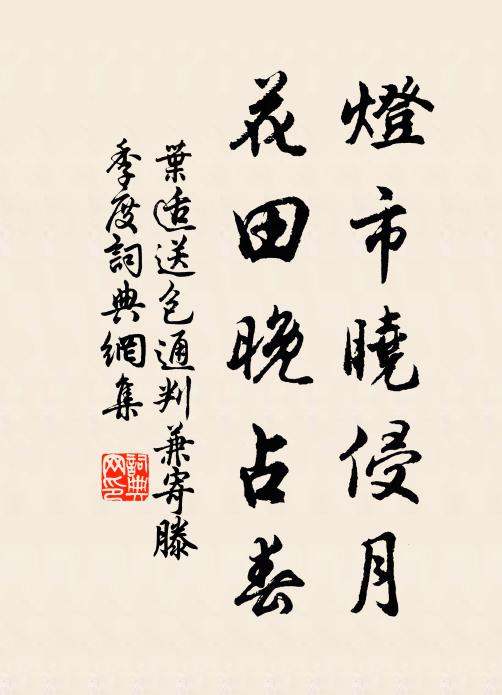 燈市曉侵月
花田晚占春
葉適送包通判兼寄滕
季度詞典網集
詞典
网印